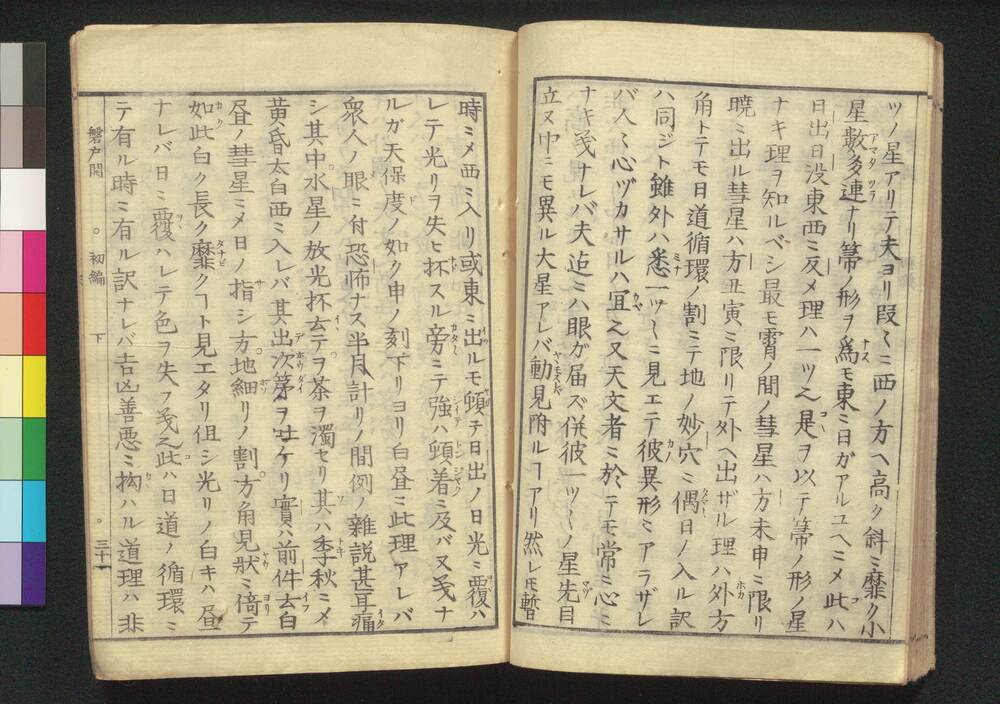 ツノ星アリテ夫ヨリ段〻ミ西ノ方ヘ高ク斜ミ靡ク小
星數多連ナリ箒ノ形ヲ爲モ東ミ日ガアルユヘミメ此ハ
日出日没東西ミ反メ理ハ一ツ之是ヲ以テ箒ノ形ノ星
ナキ理ヲ知ルベシ最モ霄ノ間ノ彗星ハ方未申ミ限リ
曉ミ出ル彗星ハ方丑寅ミ限リテ外ヘ出ザル理ハ外方
角トテモ日道循環ノ割ミテ地ノ妙穴ミ偶日ノ入ル訳
ハ同ジト雖外ハ悉一ツ〳〵ミ見エテ彼異形ミアラザレ
バ人ミ心ヅカサルハ冝之又天文者ミ於テモ常ミ心ミ
ナキ㳒ナレバ夫迠ミハ眼ガ届ズ併彼一ツ〳〵ノ星先目
立又中ニモ異ル大星アレバ動見附ルヿアリ然レモ暫
時ミメ西ミ入リ或東ミ出ルモ頓テ日出ノ日光ミ覆ハ
レテ光リヲ失ヒ抔スル旁ミテ強ハ頓着ミ及バヌ㳒ナ
ルガ天保度ノ如ク申ノ刻下リヨリ白昼ミ此理アレバ
衆人ノ眼ミ付恐怖ナス半月計リノ間例ノ雜説甚耳痛
シ其中水星ノ放光抔云テヲ茶ヲ濁セリ其ハ季秋ミメ
黄昏太白西ミ入レバ其出次第ヲ吐ケリ實ハ前件云白
昼ノ彗星ミメ日ノ指シ方地細リノ割方角見狀ミ倚テ
如此白ク長ク靡クヿト見エタリ但シ光リノ白キハ昼
ナレバ日ミ覆ハレテ色ヲ失フ㳒之此ハ日道ノ循環ミ
テ有ル時ミ有ル訳ナレバ吉凶善悪ミ拘ハル道理ハ非
磐戸開　○初編　下　○三十一